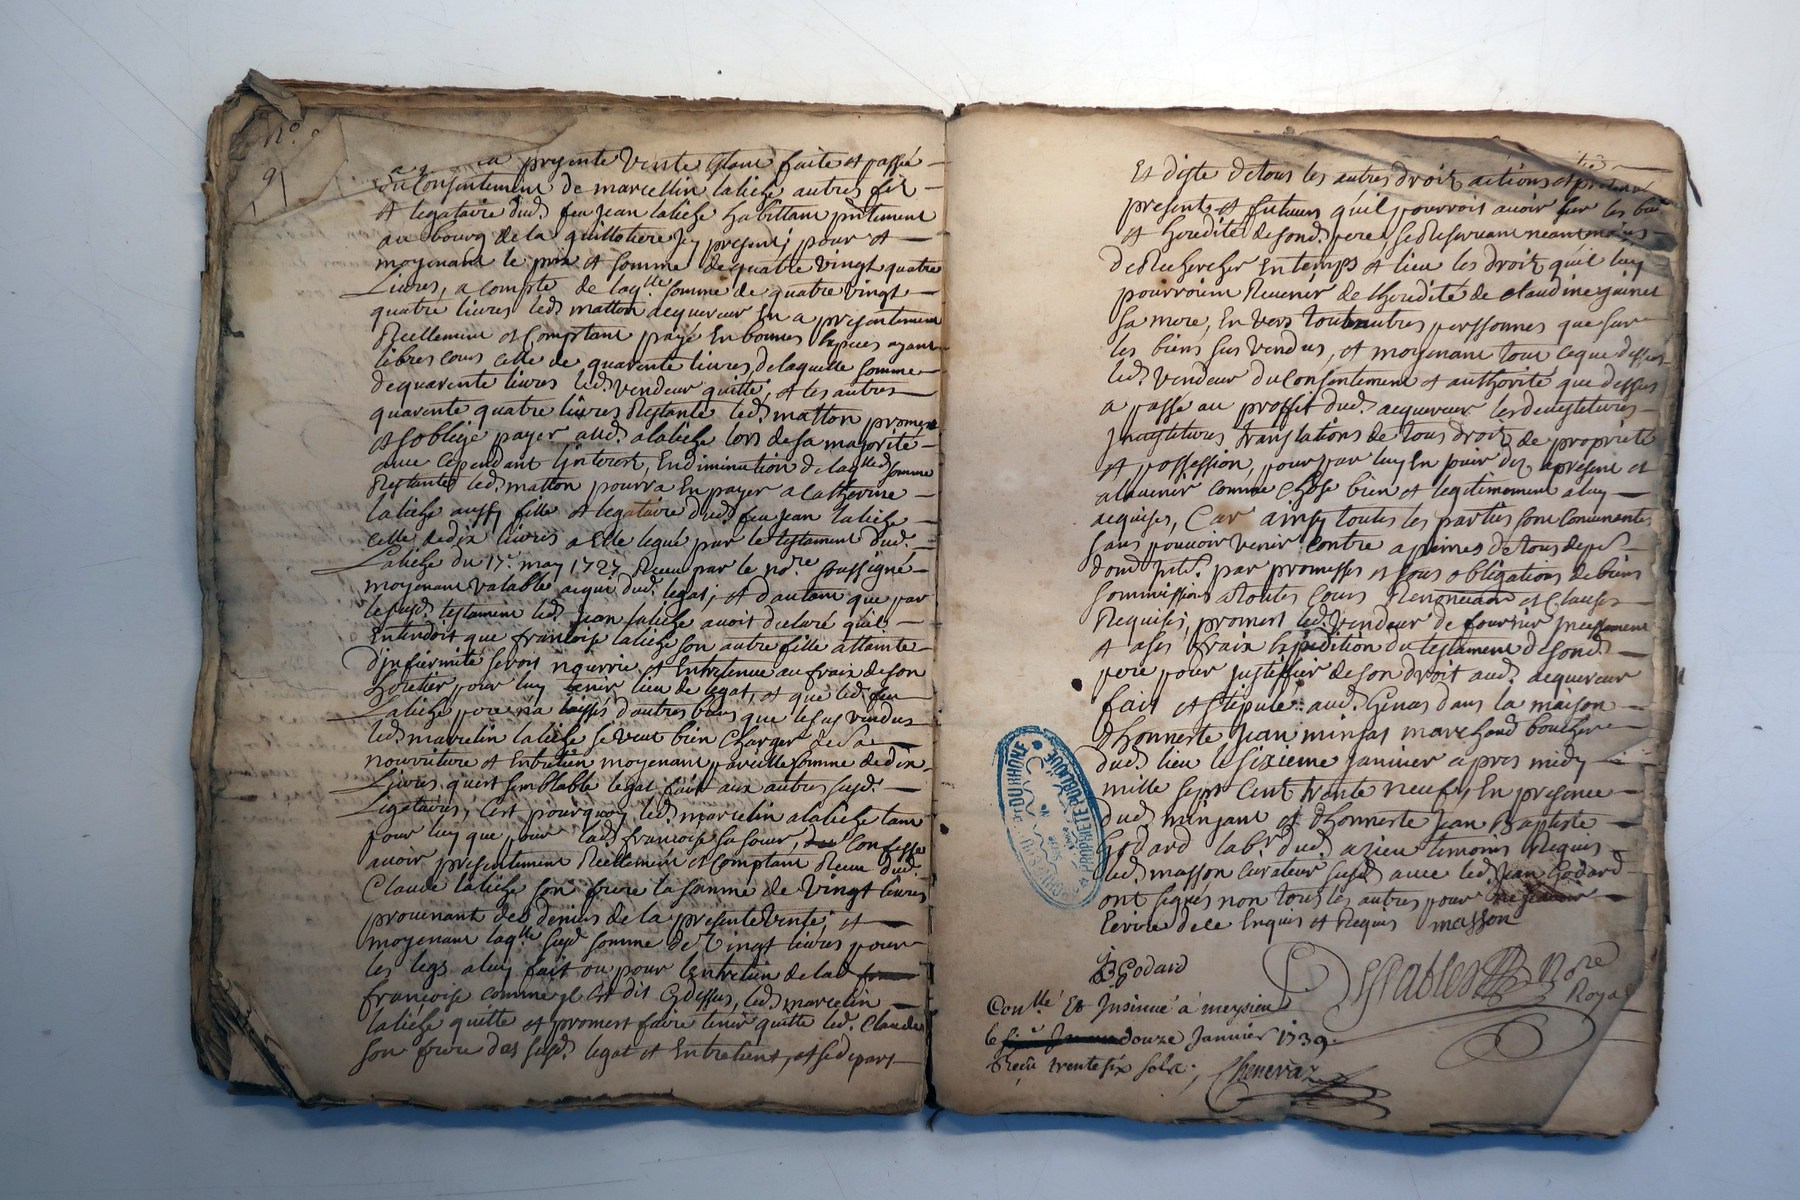 N.º
9
la presente Vente Etant faite et passée
du Consentement de marcellin laliche autres fil
et legataire dud. feu jean laliche habittant pntement
au bourg de la guillotiere jcy present; pour et
moyenant le prix et somme de quatre vingt quatre
Livres, a compte de laq.lle somme de quatre vingt
quatre livres led. matton acquereur En a presentement
Reellement et Comptant payé En bonnes Especes ayant
libres cours celle de quarente livres, de laquelle somme
de quarente livres led. vendeur quitte, et les autres
quarente quatre livres Restante led. matton promet
et soblige payer aud. alaliche lors de sa majorité
avec cependant Linterest, En diminution de laq.lle somme
Restante led. matton pourra En payer a Catherine
laliche aussy fille et legataire dud. feu jean laliche
celle de dix livres a Elle legué par le testament dud.
Laliche du 17.e may 1727 Receu par le no.re soussigné
moyenant valable acquit dud. legat, et d'autant que par
le susd. testament led. jean laliche avoit declaré qu'il
Entendoit que françoise laliche son autre fille atteinte
d'infirmité seroit nourrie et Entretenue au fraix de son
heretier pour luy tenir lieu de legat, et que led. feu
Laliche pere n'a laissés d'autres biens que les sus vendus
led. marcelin laliche se veut bien Charger de sa
nourriture et Entretien moyenant pareille somme de dix
Livres qu'est semblable legat fait aux autres susd.
Legataires, C'est pourquoy led. marcelin alaliche tant
pour luy que pour lad. francoise sa soeur, Confesse
avoir presentement Reellement et Comptant Receu dud.
Claude laliche son frere la somme de Vingt livres
provenant des deniers de la presente vente; et
moyenant laq.lle susd. somme de Vingt livres pour
les legs aluy fait ou pour lentretien de lad.
françoise comme jl Est dit Cydessus, led. marcelin
laliche quitte et promet faire tenir quitte led. Claude
son frere des susd. legat et Entretient, et se depart
Et diste de tous les autres droit, actions et
present et futeurs qu'il pourroit avoir sur les
et heredité de sond. pere se Reservant neantmoins
de Rechercher En temps et lieu les droit qu'il luy
pourroint Revenir de lheredité de Claudine
sa mere, En vers tout autres perssonnes que sur
les biens sus vendus, et moyenant tout ce que dessus
led. Vendeur du Consentement et authorité que dessus
a passé au proffit dud. acquereur les devestitures
jnvestitures translations de tous droit de proprieté
et possession, pour par luy En jouir dez apresent et
alavenir comme Chose bien et legitimement aluy
acquises, Car ainsy toutes les parties sont Convenantes
sans pouvoir venir Contre a peines de tous depens
dom. jnte. par promesses et sous obligations de biens
sommissions a toutes Cours Renonciaõn et Clauses
Requises, promet led. vendeur de fournir jncessament
et a ses fraix Expedition du testament de sond.
pere pour justiffier de son droit aud. acquereur
fait et stipulé aud. Genas dans la maison
d'honneste jean minsat marchand boucher
dud. lieu le sixieme janvier apres midy
mille sept Cent trente neuf, En presence
dud. minsant et d'honneste jean Baptiste
Godard lab.r dud. azieu temoins Requis
led. masson Curateur susd. avec led. Jean Godard
ont signés non tous les autres pour ne scavoir
Ecrire de ce Enquis et Requis masson
JB Godard
Desrables no.re
Royal
Con.llé Et Insinué à meysieu
le douze Janvier 1739.
Reçu trente six sols. Cheneraz
PROPRIETE PUBLIQUE